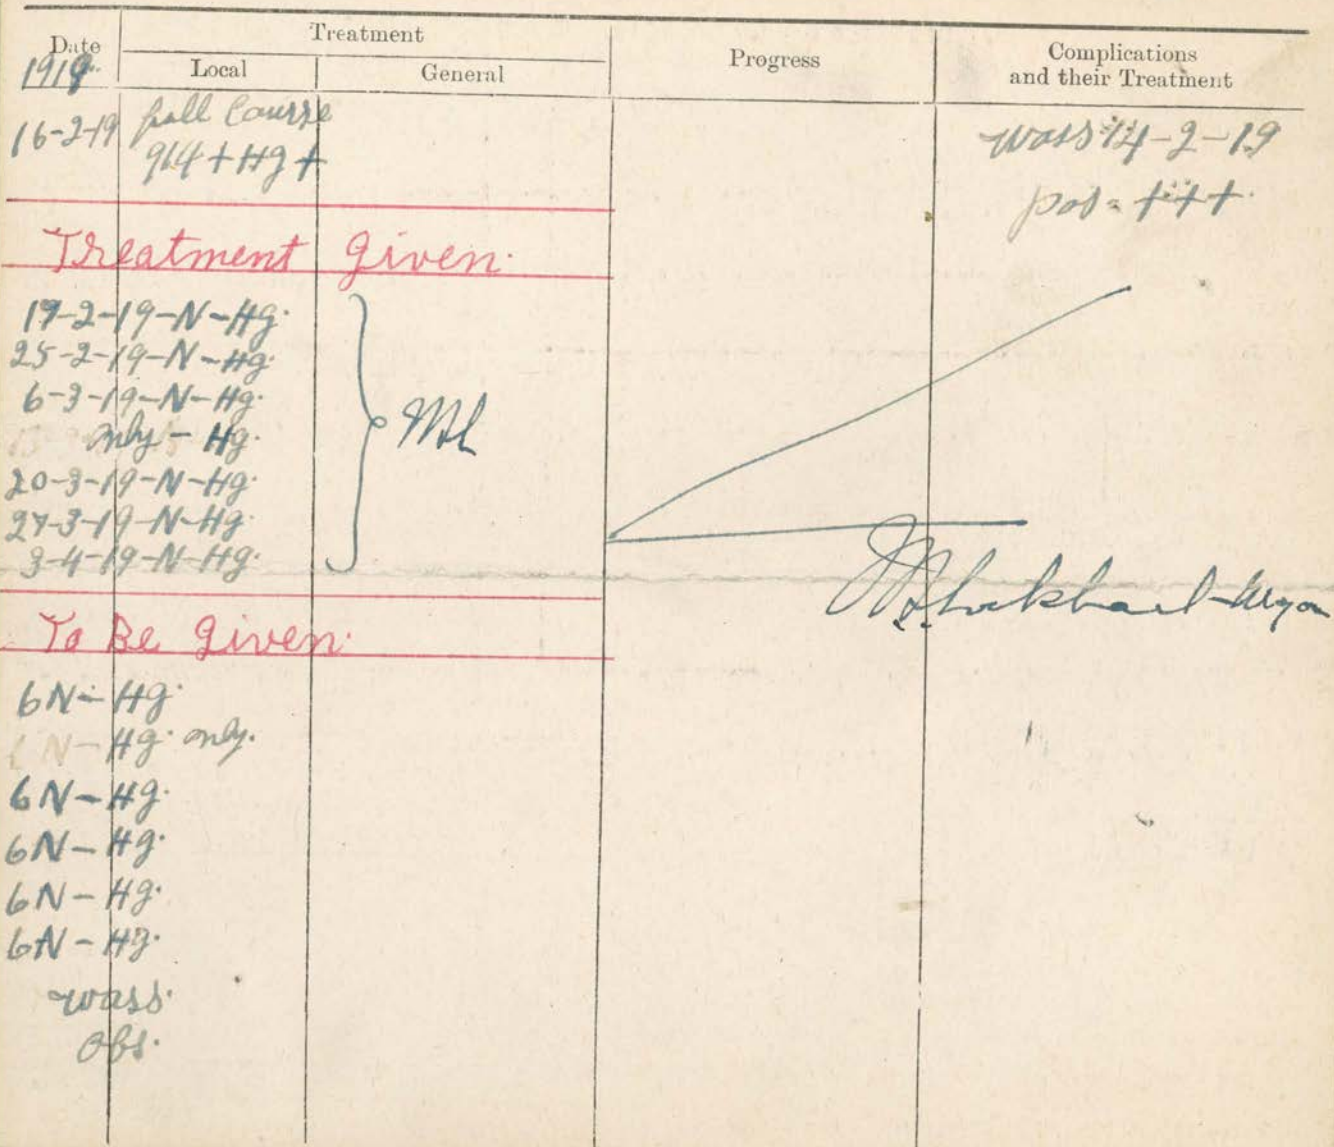 Date Treatment Progress Complications
and their Treatment
1919 Local General
16-2-19 full Course
914 + Hg +
Wass 14-2-19
pos = +++
Treatment given.
19-2-19-N-Hg.
25-2-19-N-Hg.
6-3-19-N-Hg.
only - Hg.
20-3-19-N-Hg.
27-3-19-N-Hg.
3-4-19-N-Hg.
To Be given.
6N - Hg.
6N - Hg. only.
6N - Hg.
6N - Hg.
6N - Hg.
6N - Hg.
wass.
Obs.